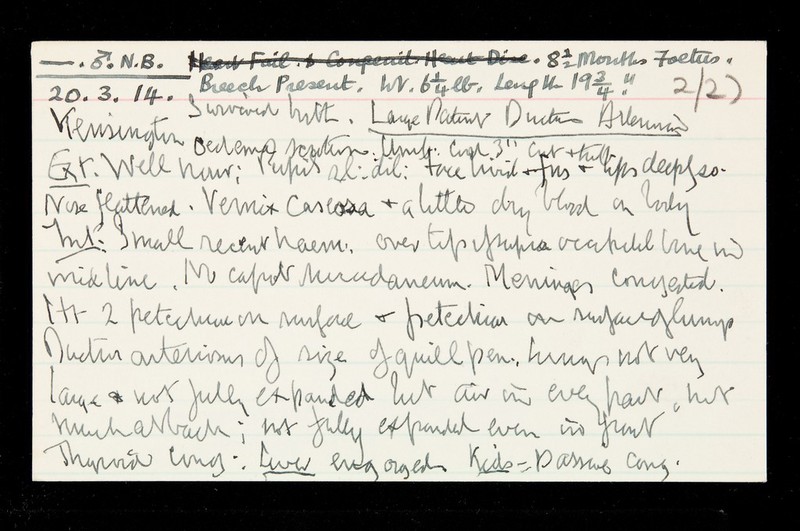 — . ♂. N.B. Heart Fail. & Congenit. Heart Dise. 8½ Months Foetus.
20. 3. 14. Breech Present. Wt. 6¼ lb. Length 19¾".
2/27
Survived birth. Large Patent Ductus Arteriosus
Kensington Oedema scrotum. Umb: Cord 3" cut &
Ext. Well nour; Pupils sl: dil: Face livid & & lips deeply so.
Nose flattened. Vernix Caseosa & a little dry blood on body
Int: Small recent haem. over tip of supra occipital bone in
mid line. No caput succedaneum. Meninges congested.
Ht 2 petechiae on surface & petechiae on surface of lungs
Ductus arteriosus of size of quill pen. Lungs not very
large & not fully expanded but air in every part, but
much at back; not fully expanded even in front
Thyroid cong:. Liver engorged Kids = Passive cong.